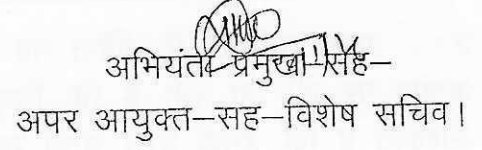 अभियंता प्रमुख–सह–
अपर आयुक्त–सह–विशेष सचिव।